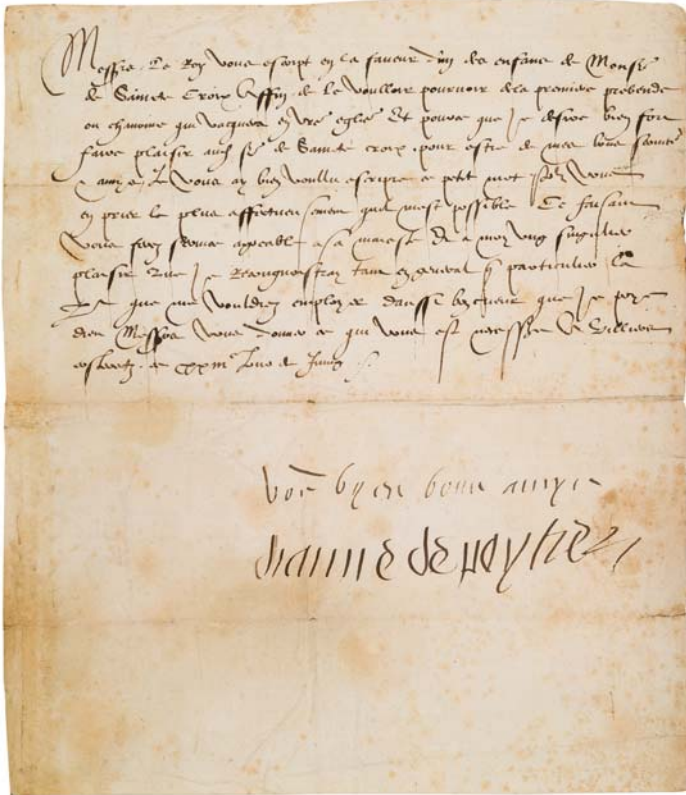 Messrs Le Roy vous escript en la faveur d'un des enfans de Monsr
de Saincte Croix affin de le voulloir pourveoir de la premiere prebende
ou chanoinie qui vacquera en vre eglise Et pource que je desire bien fort
faire plaisir aud Sr de Saincte croix pour estre de mes bons
amys Je vous ay bien voullu escripre ce petit mot vous
en prier le plus affectueusement quil mest possible Ce faisant
vous ferez service agreable a sa maieste Et a moy ung singulier
plaisir Que je recongnoistray tant en general q particulier la
ou me vouldrez employer daussi bon cueur que je prye
dieu Messrs vous donner ce qui vous est necessaire De Villiers
costeretz ce xxiiie Jour de
vre byen bonne amye
dianne de poytiers